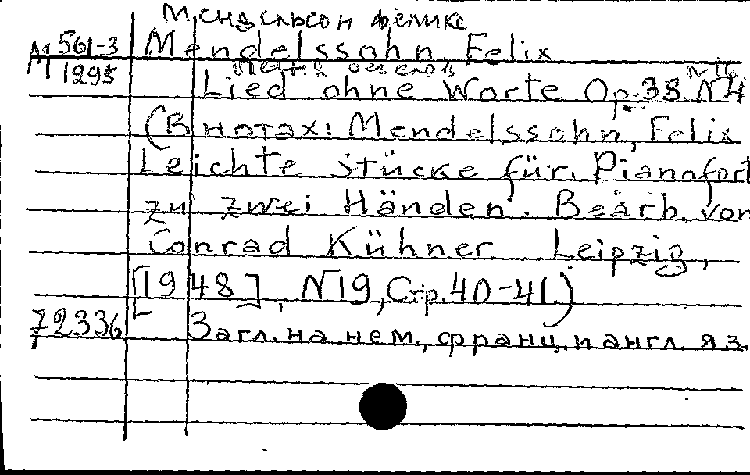 Мендельсон Феликс
М 561-3 Mendelssohn, Felix
1295 Песня без слов N 16
Lied ohne Worte Op. 38 N4
(В нотах: Mendelssohn, Felix
Leichte Stücke für Pianofort
zu zwei Händen. Bearb. von
Conrad Kühner. Leipzig,
[1948], N19, Стр. 40-41.)
72336 Загл. на нем., франц. и англ. яз.